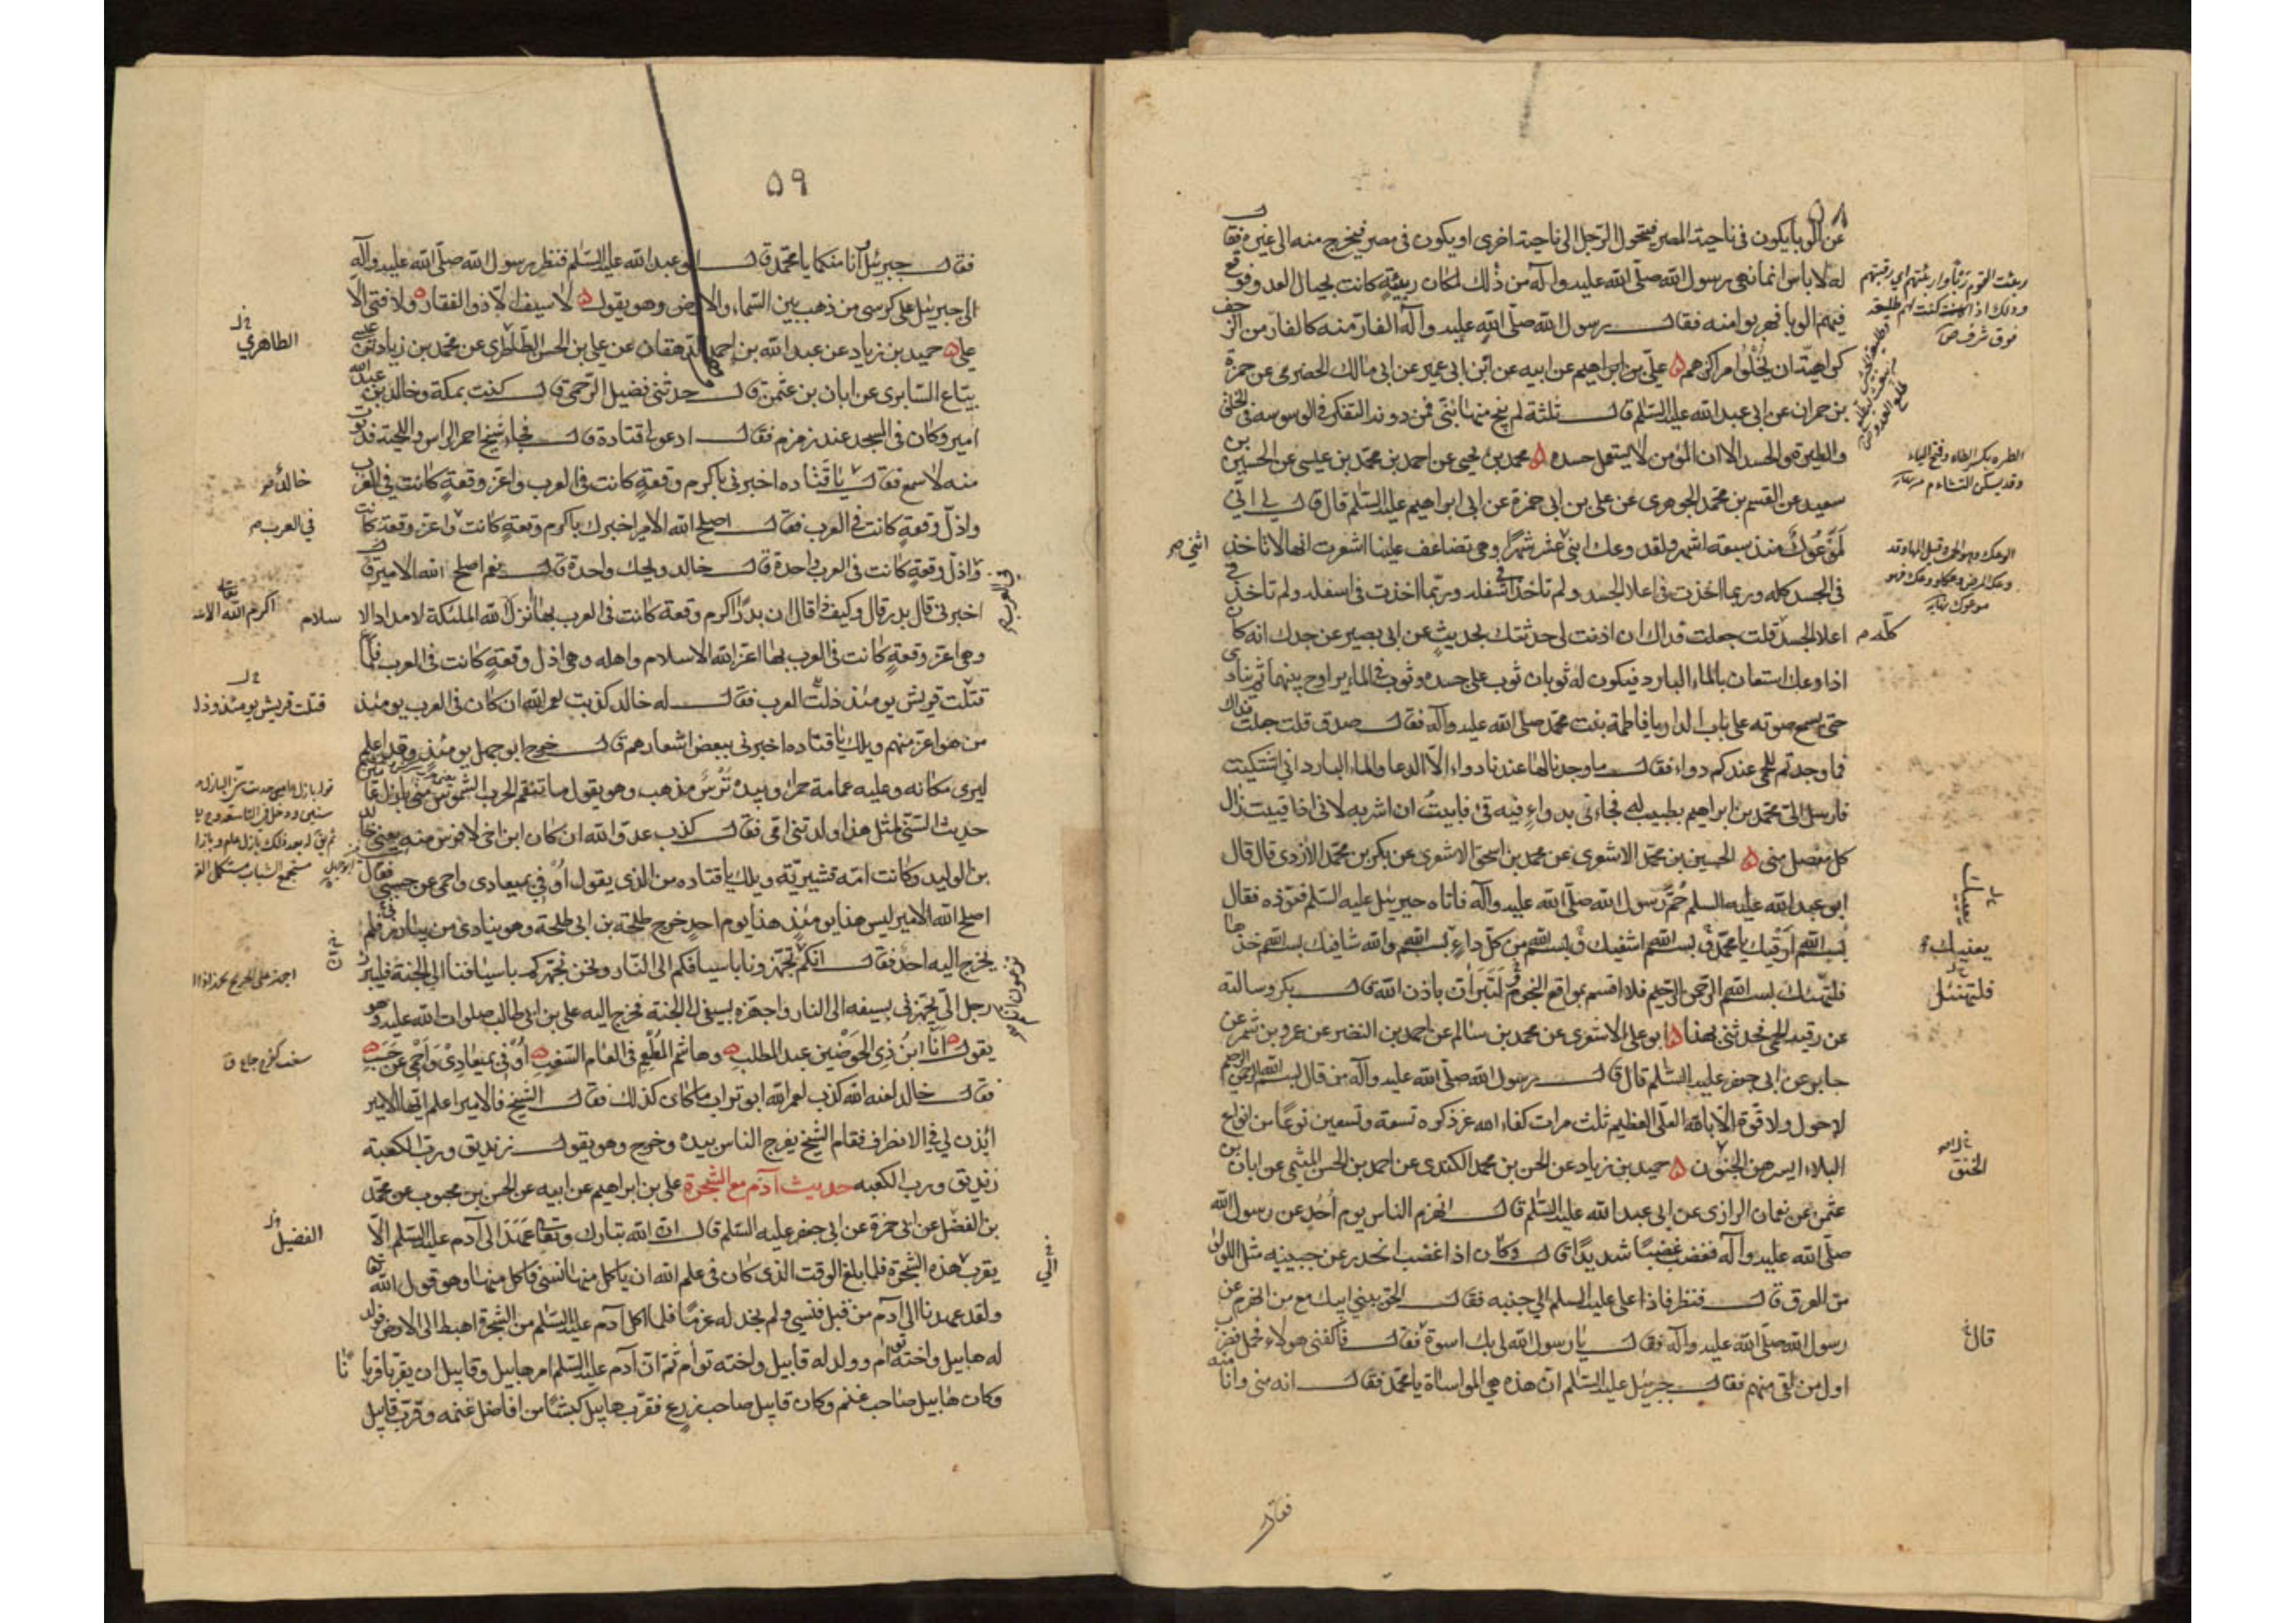 ۵۸
عن الوبا يكون فى ناحية المصر فيتحول الرجل الى ناحية اخرى او يكون فى مصر فيخرج منه الى غيره فقال
له لا باس انما نهى رسول الله صلى الله عليه وآله من ذلك لمكان ربيئة كانت بحيال العدو فوقع
فيهم الوبا فهربوا منه فقال رسول الله صلى الله عليه وآله الفار منه كالفار من الزحف
كراهية ان يخلوا مراكزهم ه علي بن ابراهيم عن ابيه عن ابن ابى عمير عن ابى مالك الحضرمى عن حمزة
بن حمران عن ابى عبد الله عليه السلم قال ثلثة لم ينج منها نبى فمن دونه التفكر فى الوسوسة فى الخلق
والطيرة والحسد الا ان المؤمن لا يستعمل حسده ه محمد بن يحيى عن احمد بن محمد بن عيسى عن الحسين بن
سعيد عن القسم بن محمد الجوهرى عن على بن ابى حمزة عن ابى ابراهيم عليه السلم قال قال لى انى
لموعوك منذ سبعة اشهر ولقد وعك ابنى عشر شهرا وهى تضاعف علينا اشعرت انها لا تاخذ
فى الجسد كله وربما اخذت فى اعلا الجسد ولم تاخذ فى اسفله وربما اخذت فى اسفله ولم تاخذ فى
اعلا الجسد قلت جعلت فداك ان اذنت لى حدثتك بحديث عن ابى بصير عن جدك انه كان
اذا وعك استعان بالماء البارد فيكون له ثوبان ثوب على جسده وثوب فى الماء يراوح بينهما ثم ينادى
حتى يسمع صوته على باب الدار يا فاطمة بنت محمد صلى الله عليه وآله فقال صدق قلت جعلت فداك
فما وجدتم للحمى عندكم دواء فقال ما وجدنا لها عندنا دواء الا الدعا والماء البارد انى اشتكيت
فارسل الى محمد بن ابراهيم بطبيب له فجاءنى بدواء فيه قئ فابيت ان اشربه لانى اذا قييت زال
كل مفصل منى ه الحسين بن محمد الاشعرى عن محمد بن اسحق الاشعرى عن بكر بن محمد الازدى قال قال
ابو عبد الله عليه السلم حم رسول الله صلى الله عليه وآله فاتاه جبرئيل عليه السلم فعوذه فقال
بسم الله ارقيك يا محمد وبسم الله اشفيك وبسم الله من كل داء بسم الله والله شافيك بسم الله خذها
فلتهنئك بسم الله الرحمن الرحيم فلا اقسم بمواقع النجوم لتبرأن باذن الله قال بكر وسالته
عن رقية الحمى فحدثنى بهذا ه ابو على الاشعرى عن محمد بن سالم عن احمد بن النضر عن عمرو بن شمر عن
جابر عن ابى جعفر عليه السلم قال قال رسول الله صلى الله عليه وآله من قال بسم الله الرحمن الرحيم
لا حول ولا قوة الا بالله العلى العظيم ثلث مرات كفاه الله عز ذكره تسعة وتسعين نوعا من انواع
البلاء ايسرهن الجنون ه حميد بن زياد عن الحسن بن محمد الكندى عن احمد بن الحسن الميثمى عن ابان بن
عثمن عن نعمان الرازى عن ابى عبد الله عليه السلم قال انهزم الناس يوم احد عن رسول الله
صلى الله عليه وآله فغضب غضبا شديدا قال وكان اذا غضب انحدر عن جبينه مثل اللؤلؤ
من العرق قال فنظر فاذا على عليه السلم الى جنبه فقال الحق ببنى ابيك مع من انهزم عن
رسول الله صلى الله عليه وآله فقال يا رسول الله لى بك اسوة فقال فاكفنى هولاء فحمل فضرب
اول من لقى منهم فقال جبرئيل عليه السلم ان هذه هى المواساة يا محمد فقال انه منى وانا منه
فقال
اثنى
كله
يعنيك
الخنق
قال
۵۹
فقال جبرئيل انا منكما يا محمد قال ابو عبد الله عليه السلم فنظر رسول الله صلى الله عليه وآله
الى جبرئيل على كرسى من ذهب بين السماء والارض وهو يقول ه لا سيف الا ذو الفقار ه ولا فتى الا
على ه حميد بن زياد عن عبد الله بن احمد الدهقان عن على بن الحسن الطاطرى عن محمد بن زياد بن عيسى
بياع السابرى عن ابان بن عثمن قال حدثنى فضيل الرحمى قال كنت بمكة وخالد بن عبد الله
امير وكان فى المسجد عند زمزم فقال ادعوا قتادة قال فجاء شيخ احمر الراس واللحية فدنوت
منه لاسمع فقال يا قتاده اخبرنى باكرم وقعة كانت فى العرب واعز وقعة كانت فى العرب
واذل وقعة كانت فى العرب فقال اصلح الله الامير اخبرك باكرم وقعة كانت واعز وقعة كانت
واذل وقعة كانت فى العرب واحدة قال خالد ويحك واحدة قال نعم اصلح الله الامير قال
اخبرنى قال بدر قال وكيف ذا قال ان بدرا اكرم وقعة كانت فى العرب بها انزل الله الملئكة لامداد الا
وهى اعز وقعة كانت فى العرب بها اعز الله الاسلام واهله وهى اذل وقعة كانت فى العرب فلما
قتلت قريش يومئذ ذلت العرب فقال له خالد كذبت لعمر الله ان كان فى العرب يومئذ
من هو اعز منهم ويلك يا قتاده اخبرنى ببعض اشعارهم قال خرج ابو جهل يومئذ وقد اعلم
ليرى مكانه وعليه عمامة حمراء وبيده ترس مذهب وهو يقول ما تنقم الحرب الشموس منى بازل عامين
حديث السن لمثل هذا ولدتنى امى فقال كذب عدو الله ان كان ابن اخى لافرس منه يعنى خالد
بن الوليد وكانت امه قشيرية ويلك يا قتاده من الذى يقول اوفى بميعادى واحمى عن حسب فقال
اصلح الله الامير ليس هذا يومئذ هذا يوم احد خرج طلحة بن ابى طلحة وهو ينادى من يبارز فلم
يخرج اليه احد فقال انكم تجهزونا باسيافكم الى النار ونحن نجهزكم باسيافنا الى الجنة فليبرز
رجل الى يجهزنى بسيفه الى النار واجهزه بسيفى الى الجنة فخرج اليه على بن ابى طالب صلوات الله عليه وهو
يقول ه انا ابن ذى الحوضين عبد المطلب ه وهاشم المطعم فى العام السغب ه اوفى بميعادى واحمى عن حسب ه
فقال خالد لعنه الله كذب لعمر الله ابو تراب ما كان كذلك فقال الشيخ فالامير اعلم ايها الامير
ائذن لى فى الانصراف فقام الشيخ يفرج الناس بيده وخرج وهو يقول زنديق ورب الكعبة
زنديق ورب الكعبه حديث آدم مع الشجرة على بن ابراهيم عن ابيه عن الحسن بن محبوب عن محمد
بن الفضل عن ابى حمزة عن ابى جعفر عليه السلم قال ان الله تبارك وتعالى عهد الى آدم عليه السلم الا
يقرب هذه الشجرة فلما بلغ الوقت الذى كان فى علم الله ان ياكل منها نسى فاكل منها وهو قول الله تعالى
ولقد عهدنا الى آدم من قبل فنسى ولم نجد له عزما فلما اكل آدم عليه السلم من الشجرة اهبط الى الارض فولد
له هابيل واخته توام وولد له قابيل واخته توام ثم ان آدم عليه السلم امر هابيل وقابيل ان يقربا قربانا
وكان هابيل صاحب غنم وكان قابيل صاحب زرع فقرب هابيل كبشا من افاضل غنمه وقرب قابيل
الطاهري
فى العرب
سلام
قتلت قريش يومئذ وذل
الفضيل